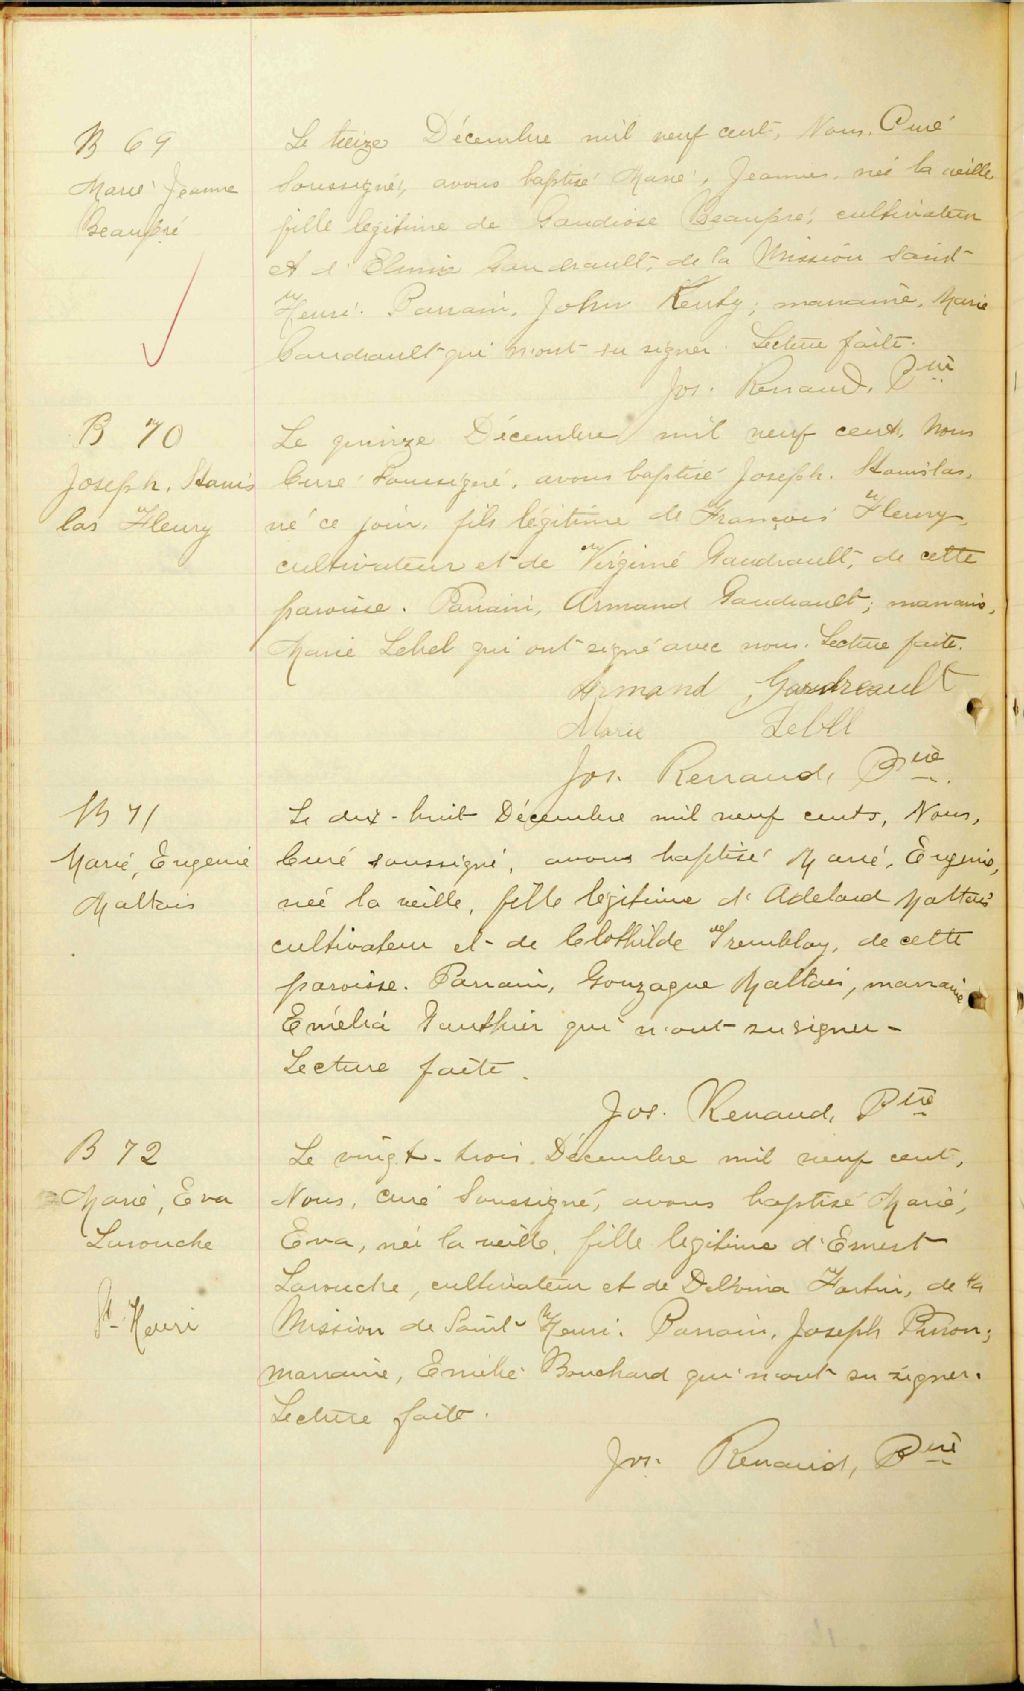 B 69
Marie Jeanne
Beaupré
Le treize Décembre mil neuf cent, Nous, Curé
Soussigné, avons baptisé Marie, Jeanne, née la veille
fille légitime de Gaudiose Beaupré, cultivateur
et d' Gaudrault, de la Mission Saint-
Henri. Parrain, John marraine, Marie
Gaudrault qui n'ont su signer. Lecture faite.
Jos. Renaud, Ptre
B 70
Joseph, Stanis
las Fleury
Le quinze Décembre mil neuf cent, Nous
Curé Soussigné, avons baptisé Joseph, Stanislas,
né ce jour, fils légitime de François Fleury,
cultivateur et de Virginie Gaudrault, de cette
paroisse. Parrain, Armand Gaudrault; marraine,
Marie Lebel qui ont signé avec nous. Lecture faite.
Armand Gaudreault
Marie Lebell
Jos. Renaud, Ptre
B 71
Marie, Eugenie
Maltais
Le dix-huit Décembre mil neuf cents, Nous,
Curé soussigné, avons baptisé Marie, Eugenie,
née la veille, fille légitime d'Adelard Maltais
cultivateur et de Clothilde Tremblay, de cette
paroisse. Parrain, Gonzague Maltais, marraine
Emélia Gauthier qui n'ont su signer -
Lecture faite.
Jos. Renaud, Ptre
B 72
Marie, Eva
Larouche
St-Henri
Le vingt-trois Décembre mil neuf cent,
Nous, curé Soussigné, avons baptisé Marie,
Eva, née la veille, fille légitime d'Ernest
Larouche, cultivateur et de Delvina Fortin, de la
Mission de Saint-Henri. Parrain, Joseph
marraine, Emélie Bouchard qui n'ont su signer.
Lecture faite.
Jos. Renaud, Ptre